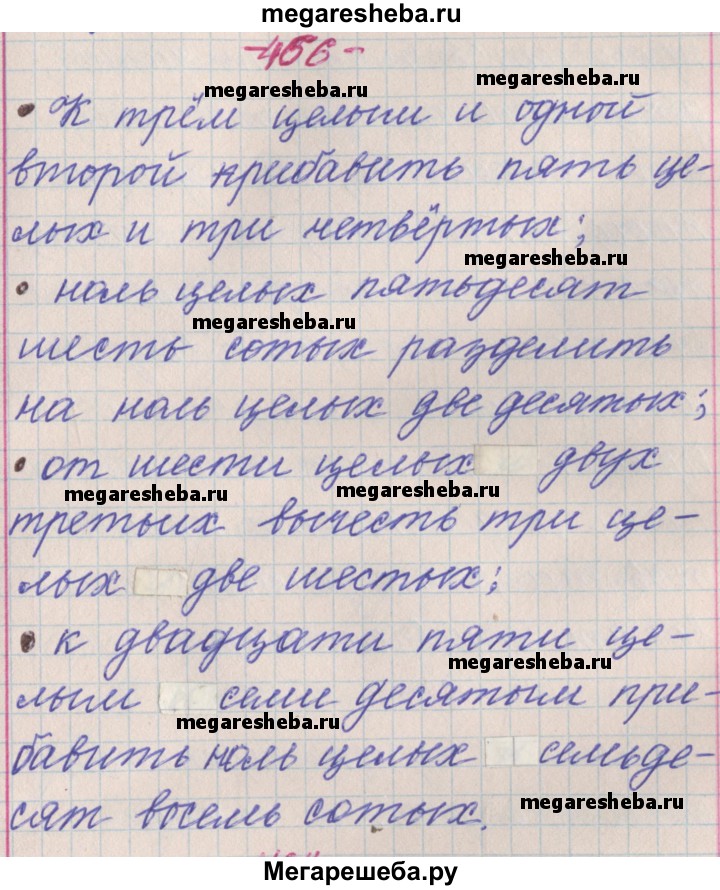 megaresheba.ru
-456-
megaresheba.ru
megaresheba.ru
• К трём целым и одной
второй прибавить пять це-
лых и три четвёртых;
megaresheba.ru
• ноль целых пятьдесят
megaresheba.ru
шесть сотых разделить
на ноль целых две десятых;
• от шести целых двух
megaresheba.ru
megaresheba.ru
третьих вычесть три це-
лых две шестых;
• к двадцати пяти це-
megaresheba.ru
лым семи десятым при-
megaresheba.ru
бавить ноль целых семьде-
сят восемь сотых.
megaresheba.ru
Мегарешеба.ру